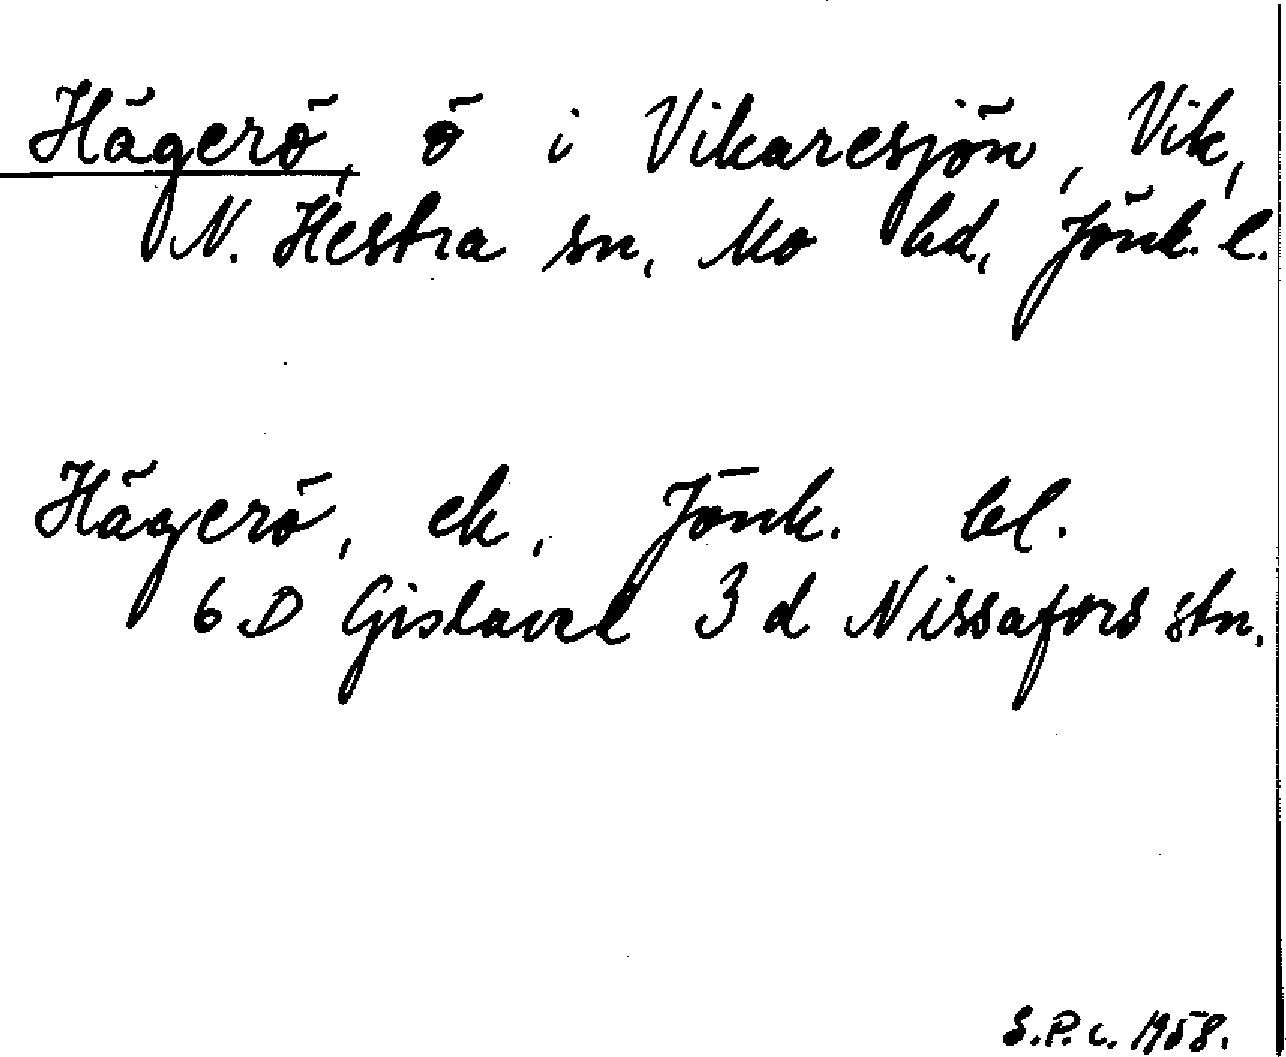 Hägerö, ö i Vikaresjön, Vik,
N. Hestra sn, Mo hd, Jönk. l.
Hägerö, ek, Jönk. bl.
6 D Gislaved 3 d Nissafors stn.
S.P.c. 1958.